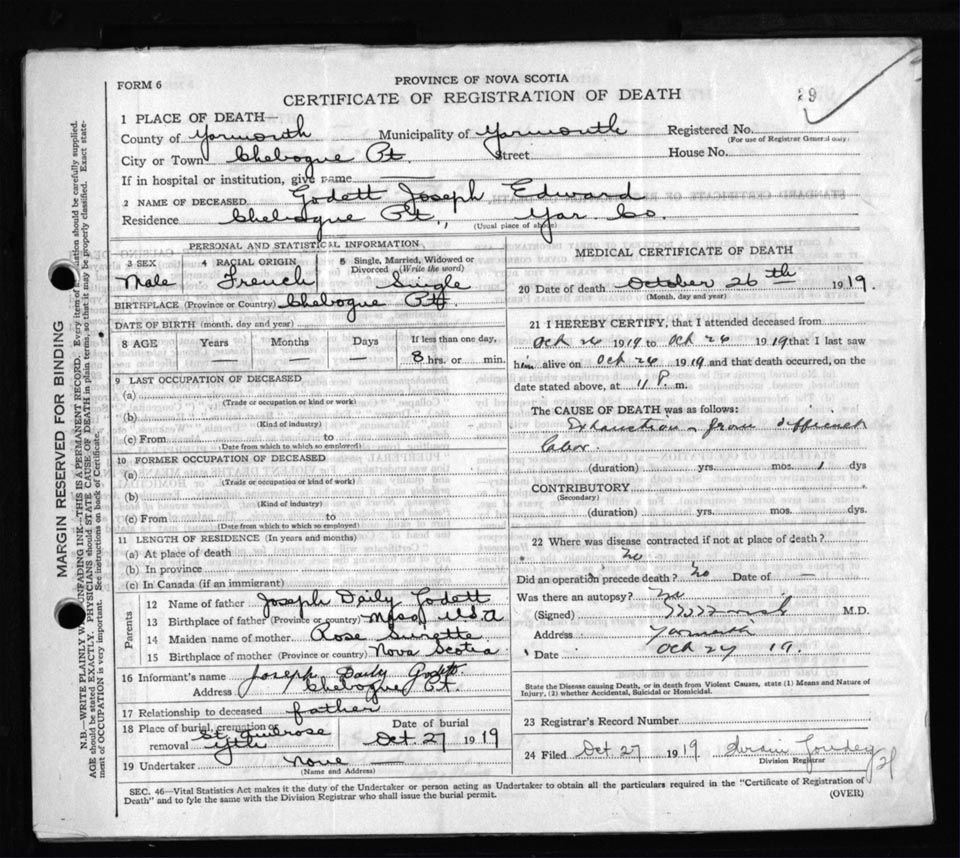 FORM 6
PROVINCE OF NOVA SCOTIA
CERTIFICATE OF REGISTRATION OF DEATH
29
1 PLACE OF DEATH—
County of Yarmouth Municipality of Yarmouth Registered No.
(For use of Registrar General only)
City or Town Chebogue Pt. Street House No.
If in hospital or institution, give name
2 NAME OF DECEASED Godett Joseph Edward
Residence Chebogue Pt., Yar. Co.
(Usual place of abode)
PERSONAL AND STATISTICAL INFORMATION
3 SEX Male
4 RACIAL ORIGIN French
5 Single, Married, Widowed or Divorced (Write the word) Single
BIRTHPLACE (Province or Country) Chebogue Pt.
DATE OF BIRTH (month, day and year)
8 AGE Years — Months — Days — If less than one day, 8 hrs. or min.
9 LAST OCCUPATION OF DECEASED
(a)
(Trade or occupation or kind or work)
(b)
(Kind of industry)
(c) From to
(Date from which to which so employed)
10 FORMER OCCUPATION OF DECEASED
(a)
(Trade or occupation or kind of work)
(b)
(Kind of industry)
(c) From to
(Date from which to which so employed)
11 LENGTH OF RESIDENCE (In years and months)
(a) At place of death
(b) In province
(c) In Canada (if an immigrant)
Parents
12 Name of father Joseph Daily Godett
13 Birthplace of father (Province or country) U.S.A
14 Maiden name of mother Rose Surette
15 Birthplace of mother (Province or country) Nova Scotia
16 Informant's name Joseph Daily Godett
Address Chebogue Pt.
17 Relationship to deceased father
18 Place of burial, cremation or removal St. Ambrose Yth
Date of burial Oct. 27 1919
19 Undertaker none —
(Name and Address)
MEDICAL CERTIFICATE OF DEATH
20 Date of death October 26th 1919
(Month, day and year)
21 I HEREBY CERTIFY, that I attended deceased from
Oct 26 1919 to Oct 26 1919 that I last saw
him alive on Oct 26 1919 and that death occurred, on the
date stated above, at 11 P. m.
The CAUSE OF DEATH was as follows:
Exhaustion from difficult
labor
(duration) yrs. mos. 1 dys
CONTRIBUTORY
(Secondary)
(duration) yrs. mos. dys.
22 Where was disease contracted if not at place of death?
no
Did an operation precede death? no Date of —
Was there an autopsy? no
(Signed) M.D.
Address Yarmouth
Date Oct 27 19.
State the Disease causing Death, or in Death from Violent Causes, state (1) Means and Nature of
Injury, (2) whether Accidental, Suicidal or Homicidal.
23 Registrar's Record Number
24 Filed Oct 27 1919
Division Registrar
SEC. 46—Vital Statistics Act makes it the duty of the Undertaker or person acting as Undertaker to obtain all the particulars required in the "Certificate of Registration of
Death" and to fyle the same with the Division Registrar who shall issue the burial permit.
(OVER)
MARGIN RESERVED FOR BINDING
N.B.—WRITE PLAINLY W UNFADING INK—THIS IS A PERMANENT RECORD. Every item of should be carefully supplied.
AGE should be stated EXACTLY. PHYSICIANS should STATE CAUSE OF DEATH in plain terms, so that it may be properly classified. Exact state-
ment of OCCUPATION is very important. See instructions on back of Certificate.